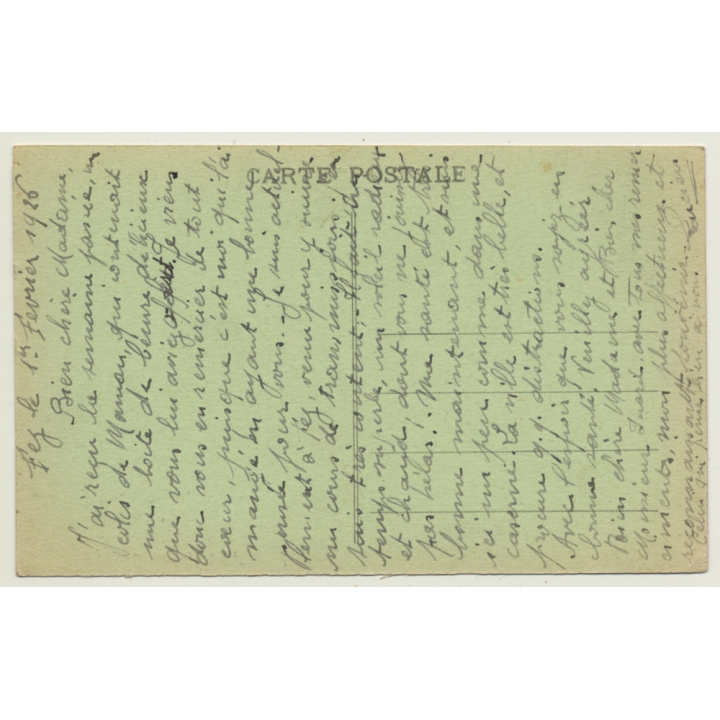 CARTE POSTALE
Fez le 1er Février 1926
Bien chère Madame,
J'ai reçu la semaine passée, un
colis de Maman, qui contenait
une boîte de beurre délicieux
que vous lui aviez offert. Je viens
donc vous en remercier de tout
cœur, puisque c'est moi qui l'ai
mangé en ayant une bonne
pensée pour vous. Je suis actuel-
lement à Fez, venu pour y suivre
un cours de transmissions. J'en
suis très content. Il fait un
temps superbe, un soleil radieux
et chaud, dont vous ne jouissez
pas hélas! Ma santé est très
bonne maintenant, et suis
ici un peu comme dans une
caserne. La ville est très belle, et
procure q.q. distractions.
Avec l'espoir que vous soyez en
bonne santé. Veuillez agréer
Bien chère Madame et Bien cher
Monsieur avec tous mes remer
ciements, mon plus affectueux et
reconnaissant
Celui qui pense bien à vous.
Lucien